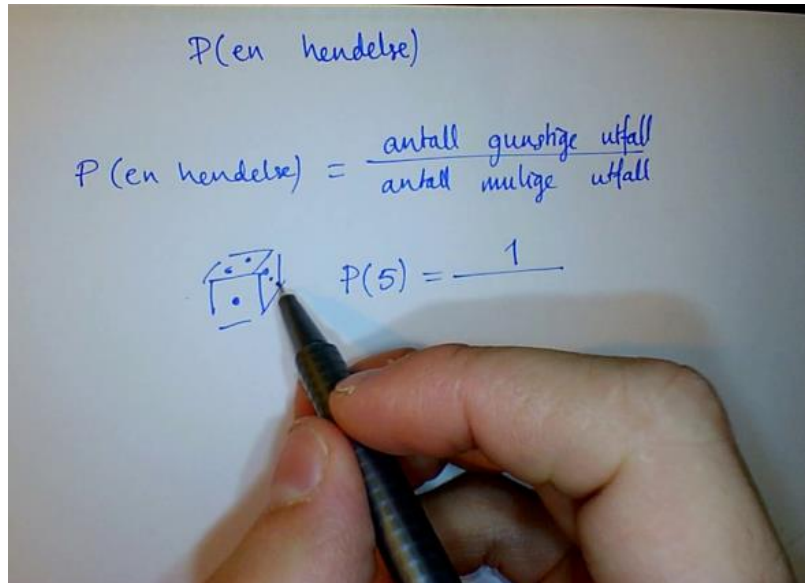 P(en hendelse)
P(en hendelse) = antall gunstige utfall
antall mulige utfall
P(5) = 1